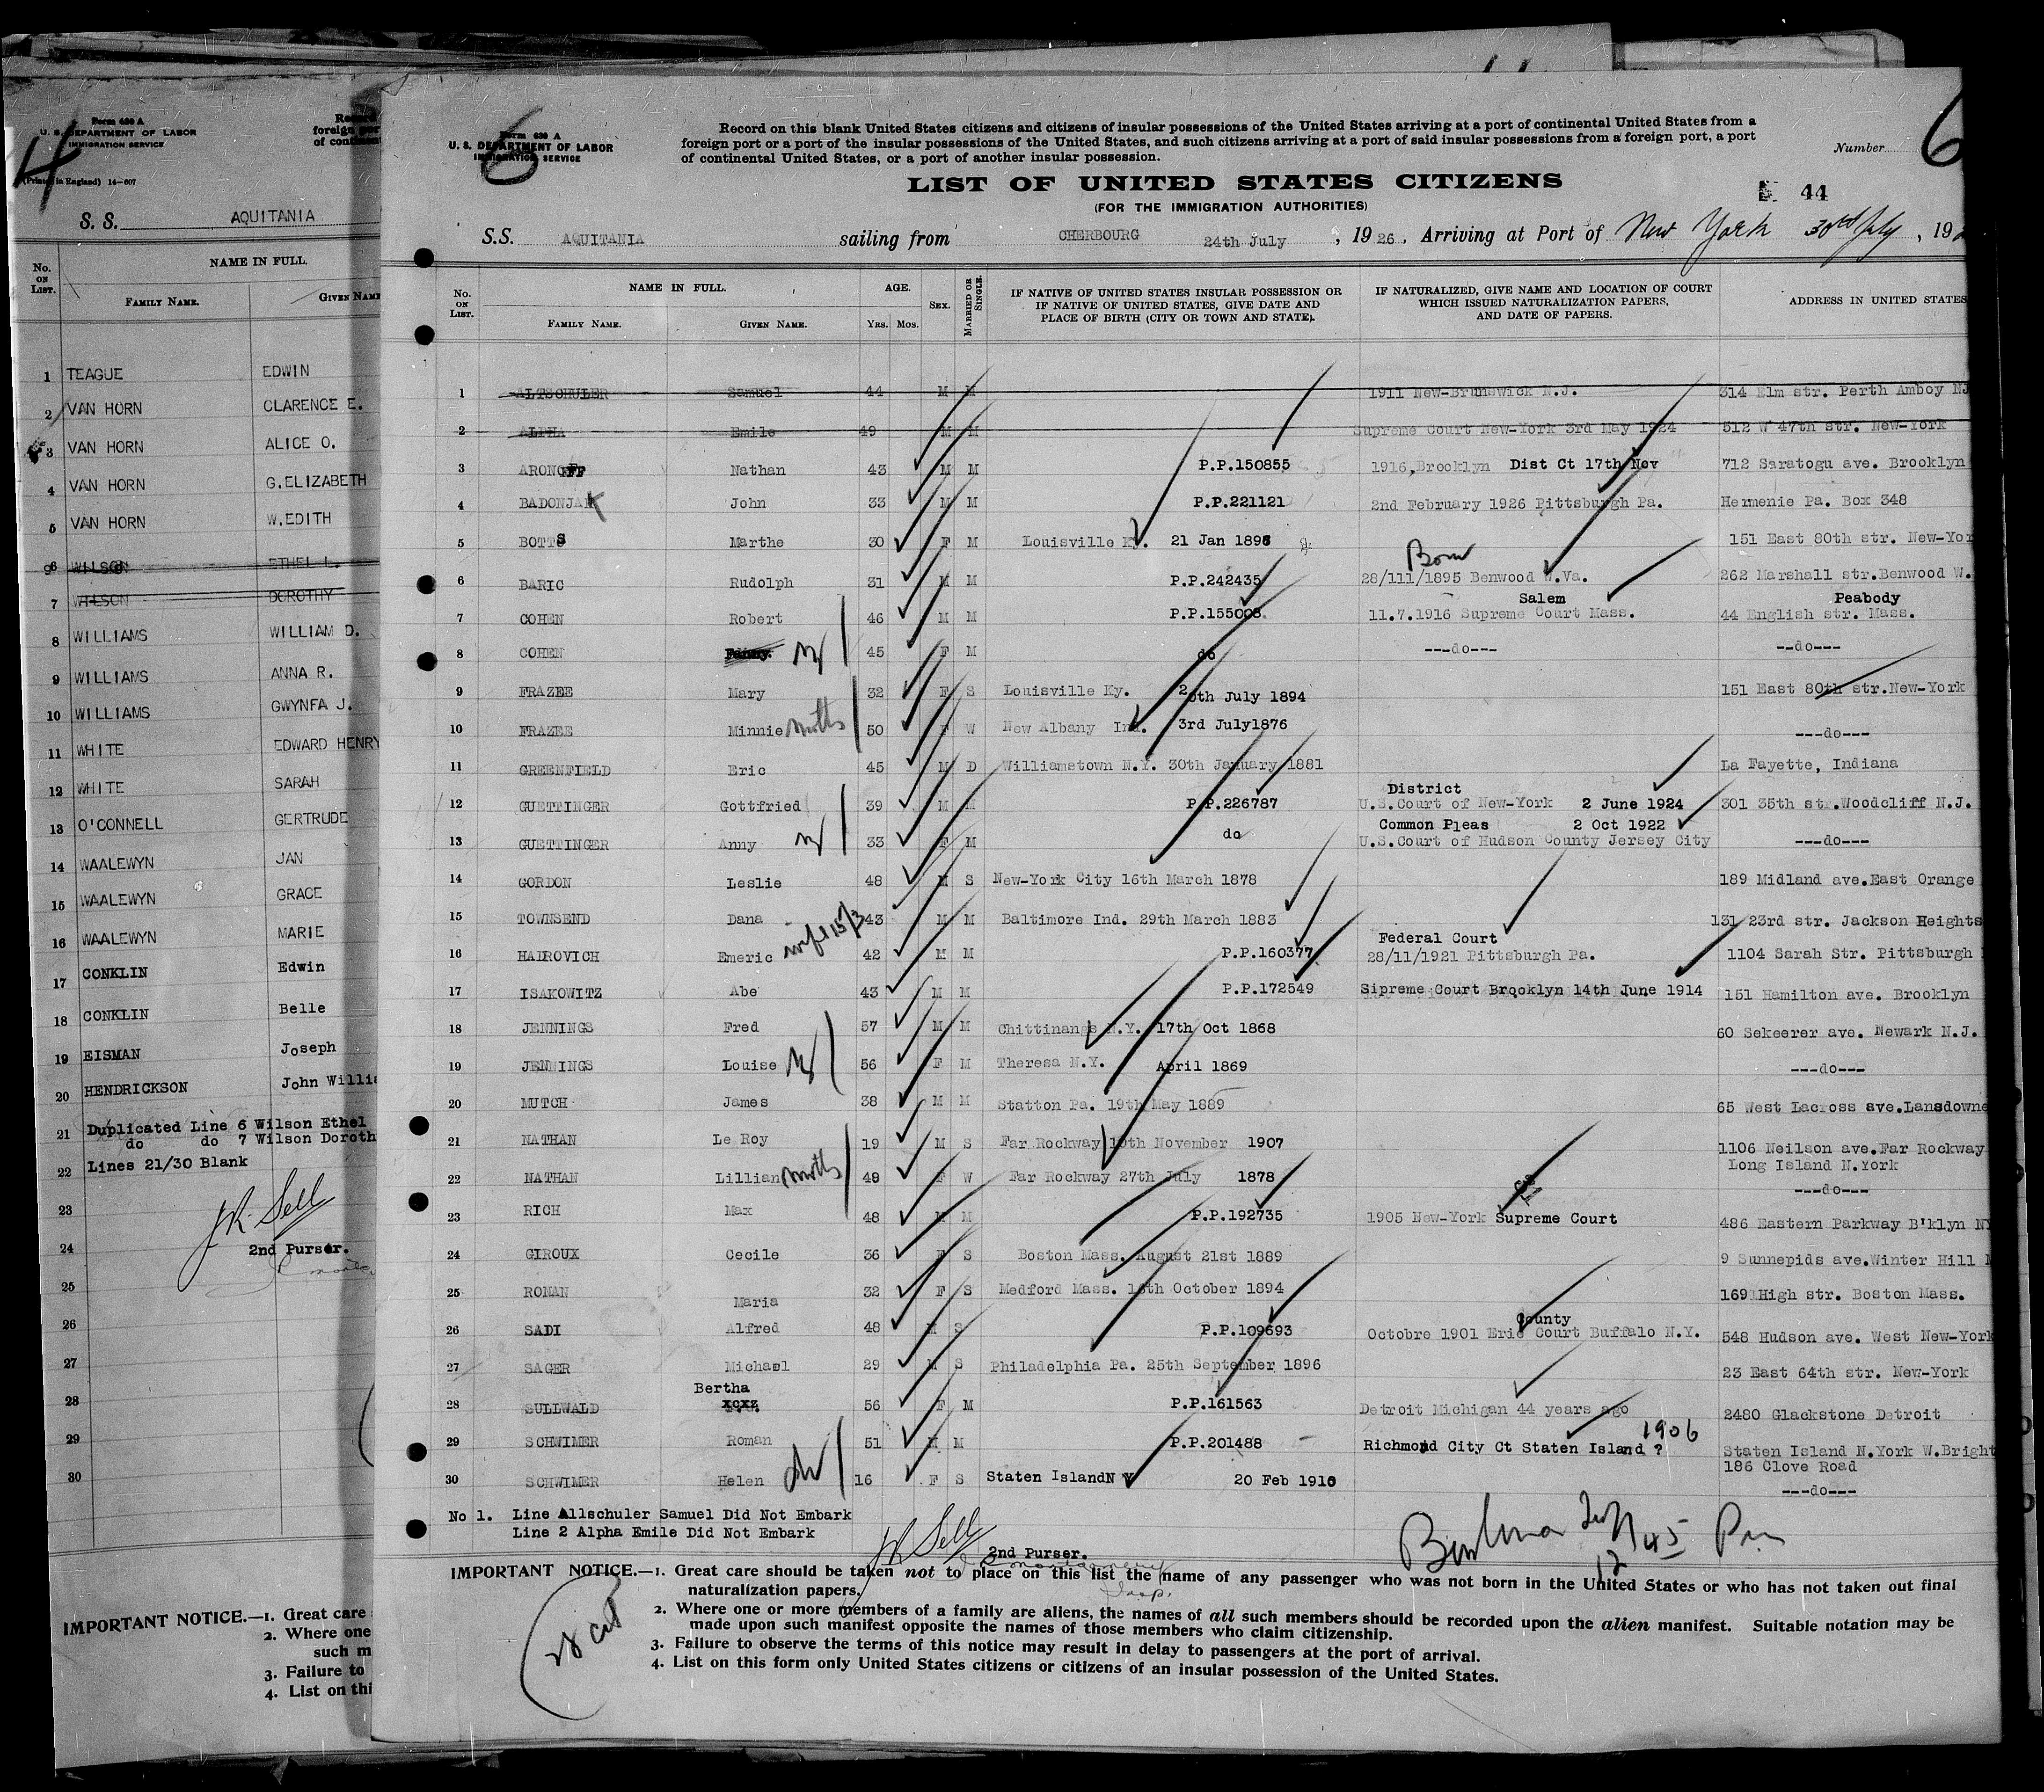 4
Form 630 A
U. S. DEPARTMENT OF LABOR
IMMIGRATION SERVICE
(Printed in England) 14—607
S. S. AQUITANIA
No. ON LIST.
NAME IN FULL.
FAMILY NAME.
GIVEN NAME
1 TEAGUE EDWIN
2 VAN HORN CLARENCE E.
3 VAN HORN ALICE O.
4 VAN HORN G.ELIZABETH
5 VAN HORN W.EDITH
6 WILSON ETHEL L.
7 WILSON DOROTHY
8 WILLIAMS WILLIAM D.
9 WILLIAMS ANNA R.
10 WILLIAMS GWYNFA J.
11 WHITE EDWARD HENRY
12 WHITE SARAH
13 O'CONNELL GERTRUDE
14 WAALEWYN JAN
15 WAALEWYN GRACE
16 WAALEWYN MARIE
17 CONKLIN Edwin
18 CONKLIN Belle
19 EISMAN Joseph
20 HENDRICKSON John Willia
21 Duplicated Line 6 Wilson Ethel
do do 7 Wilson Doroth
22 Lines 21/30 Blank
23
24 2nd Purser.
25
26
27
28
29
30
IMPORTANT NOTICE.—1. Great care
2. Where one
such m
3. Failure to
4. List on thi
6
Form 630 A
U. S. DEPARTMENT OF LABOR
IMMIGRATION SERVICE
Record on this blank United States citizens and citizens of insular possessions of the United States arriving at a port of continental United States from a
foreign port or a port of the insular possessions of the United States, and such citizens arriving at a port of said insular possessions from a foreign port, a port
of continental United States, or a port of another insular possession.
Number 6
LIST OF UNITED STATES CITIZENS
(FOR THE IMMIGRATION AUTHORITIES)
44
S.S. AQUITANIA sailing from CHERBOURG 24th July, 1926, Arriving at Port of New York 30rd July, 19
No. ON LIST.
NAME IN FULL.
FAMILY NAME. GIVEN NAME.
AGE.
Yrs. Mos.
SEX.
MARRIED OR SINGLE.
IF NATIVE OF UNITED STATES INSULAR POSSESSION OR
IF NATIVE OF UNITED STATES, GIVE DATE AND
PLACE OF BIRTH (CITY OR TOWN AND STATE).
IF NATURALIZED, GIVE NAME AND LOCATION OF COURT
WHICH ISSUED NATURALIZATION PAPERS,
AND DATE OF PAPERS.
ADDRESS IN UNITED STATES
1 ALTSCHULER Samuel 44 M M 1911 New-Brunswick N.J. 314 Elm str. Perth Amboy NJ
2 ALPHA Emile 49 M M Supreme Court New-York 3rd May 1924 512 W 47th str. New-York
3 ARONOFF Nathan 43 M M P.P.150855 1916,Brooklyn Dist Ct 17th Nov 712 Saratogu ave. Brooklyn
4 BADONJAK John 33 M M P.P.221121 2nd February 1926 Pittsburgh Pa. Hermenie Pa. Box 348
5 BOTTS Marthe 30 F M Louisville Ky. 21 Jan 1896 151 East 80th str. New-Yor
Born
6 BARIC Rudolph 31 M M P.P.242435 28/111/1895 Benwood W.Va. 262 Marshall str.Benwood W.
Salem Peabody
7 COHEN Robert 46 M M P.P.155008 11.7.1916 Supreme Court Mass. 44 English str. Mass.
8 COHEN 45 F M do ---do--- --do---
9 FRAZEE Mary 32 F S Louisville Ky. 20th July 1894 151 East 80th str.New-York
10 FRAZEE Minnie moth 50 F W New Albany Ind. 3rd July1876 ---do---
11 GREENFIELD Eric 45 M D Williamstown N.Y. 30th January 1881 La Fayette, Indiana
District
12 GUETTINGER Gottfried 39 M M P.P.226787 U.S.Court of New-York 2 June 1924 301 35th str.Woodcliff N.J.
Common Pleas 2 Oct 1922
13 GUETTINGER Anny 33 F M do U.S.Court of Hudson County Jersey City ---do---
14 GORDON Leslie 48 M S New-York City 16th March 1878 189 Midland ave.East Orange
15 TOWNSEND Dana 43 M M Baltimore Ind. 29th March 1883 131 23rd str. Jackson Heights
wife 15/3
Federal Court
16 HAIROVICH Emeric 42 M M P.P.160377 28/11/1921 Pittsburgh Pa. 1104 Sarah Str. Pittsburgh
17 ISAKOWITZ Abe 43 M M P.P.172549 Sipreme Court Brooklyn 14th June 1914 151 Hamilton ave. Brooklyn
18 JENNINGS Fred 57 M M Chittinangs N.Y. 17th Oct 1868 60 Sekeerer ave. Newark N.J.
19 JENNINGS Louise 56 F M Theresa N.Y. April 1869 ---do---
20 MUTCH James 38 M M Statton Pa. 19th May 1889 65 West Lacross ave.Lansdowne
21 NATHAN Le Roy 19 M S Far Rockway 10th November 1907 1106 Neilson ave.Far Rockway
Long Island N.York
22 NATHAN Lillian moth 48 F W Far Rockway 27th July 1878 ---do---
23 RICH Max 48 M M P.P.192735 1905 New-York Supreme Court 486 Eastern Parkway B'klyn NY
24 GIROUX Cecile 36 F S Boston Mass. August 21st 1889 9 Sunnepids ave.Winter Hill
25 RONAN Maria 32 F S Medford Mass. 16th October 1894 169 High str. Boston Mass.
County
26 SADI Alfred 48 M S P.P.109693 Octobre 1901 Erie Court Buffalo N.Y. 548 Hudson ave. West New-York
27 SAGER Michael 29 M S Philadelphia Pa. 25th September 1896 23 East 64th str. New-York
Bertha
28 SULLWALD xcxz 56 F M P.P.161563 Detroit Michigan 44 years ago 2480 Glackstone Detroit
1906
29 SCHWIMER Roman 51 M M P.P.201488 Richmond City Ct Staten Island ? Staten Island N.York W.Bright
186 Clove Road
30 SCHWIMER Helen 16 F S Staten IslandN Y 20 Feb 1910 ---do---
No 1. Line Allschuler Samuel Did Not Embark
Line 2 Alpha Emile Did Not Embark
2nd Purser.
IMPORTANT NOTICE.—1. Great care should be taken not to place on this list the name of any passenger who was not born in the United States or who has not taken out final
naturalization papers.
2. Where one or more members of a family are aliens, the names of all such members should be recorded upon the alien manifest. Suitable notation may be
made upon such manifest opposite the names of those members who claim citizenship.
3. Failure to observe the terms of this notice may result in delay to passengers at the port of arrival.
4. List on this form only United States citizens or citizens of an insular possession of the United States.
28 cit